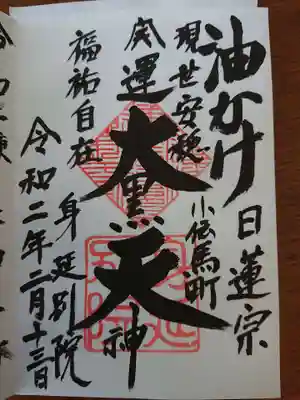 油かけ
日蓮宗
小伝馬町
現世安穏
開運
大黒天神
福祐自在
身延別院
令和二年二月十三日